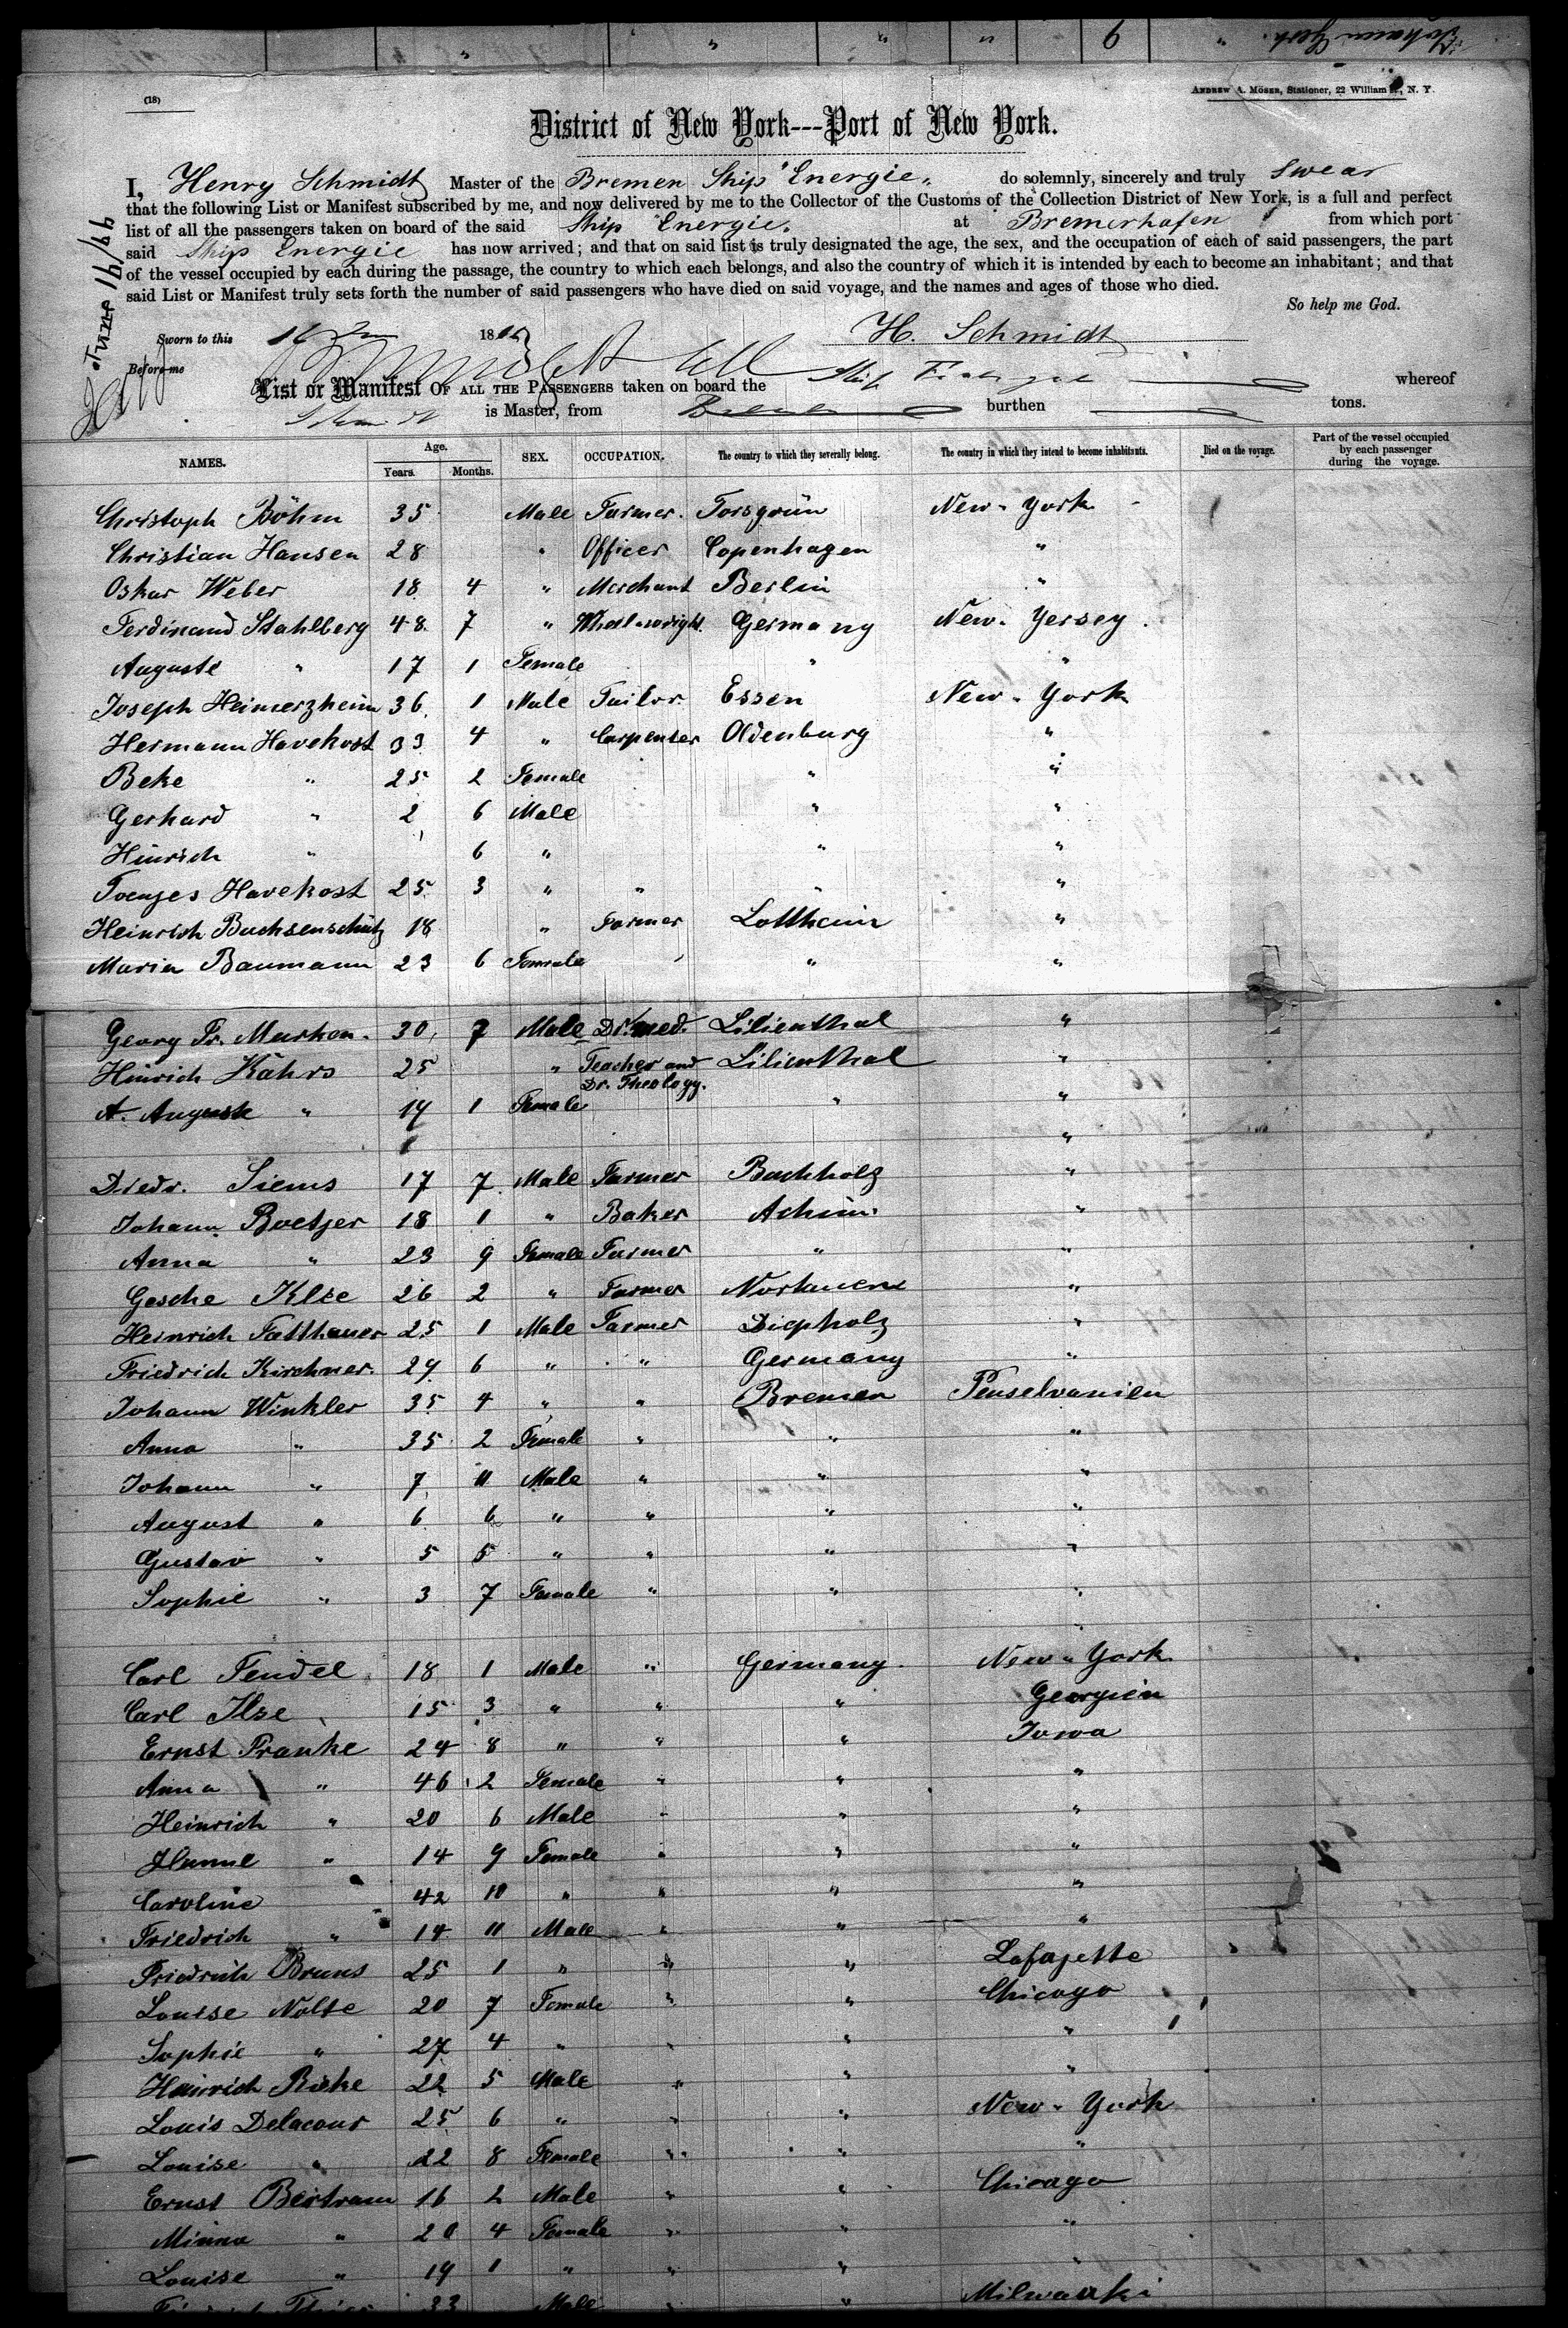 6
(18)
ANDREW A. MÖSER, Stationer, 22 William St., N. Y.
District of New York---Port of New York.
I, Henry Schmidt Master of the Bremen Ship "Energie" do solemnly, sincerely and truly swear
that the following List or Manifest subscribed by me, and now delivered by me to the Collector of the Customs of the Collection District of New York, is a full and perfect
list of all the passengers taken on board of the said Ship Energie. at Bremerhafen from which port
said Ship Energie has now arrived; and that on said list is truly designated the age, the sex, and the occupation of each of said passengers, the part
of the vessel occupied by each during the passage, the country to which each belongs, and also the country of which it is intended by each to become an inhabitant; and that
said List or Manifest truly sets forth the number of said passengers who have died on said voyage, and the names and ages of those who died.
So help me God.
June 16/66
Sworn to this 16 June 1866 H. Schmidt
Before me
List or Manifest OF ALL THE PASSENGERS taken on board the Ship whereof
Schmidt is Master, from burthen tons.
NAMES. Age. Years. Months. SEX. OCCUPATION. The country to which they severally belong. The country in which they intend to become inhabitants. Died on the voyage. Part of the vessel occupied by each passenger during the voyage.
Christoph Böhm 35 Male Farmer. Torsgrün New-York
Christian Hansen 28 " Officer Copenhagen "
Oskar Weber 18 4 " Merchant Berlin "
Ferdinand Stahlberg 48 7 " Wheelwright Germany New-Yersey
Auguste " 17 1 Female " "
Joseph Heimerzheim 36 1 Male Tailor Essen New-York
Hermann Havekost 33 4 " Carpenter Oldenburg "
Beke " 25 2 Female " "
Gerhard " 2 6 Male " "
Hinrich " 6 " " "
Toenjes Havekost 25 3 " " " "
Heinrich Buchsenschütz 18 " Farmer Lottheim "
Maria Baumann 23 6 Female " "
Georg Fr. Murken 30 7 Male Dr. med. Lilienthal "
Hinrich Kahrs 25 " Teacher and Dr. Theology. Lilienthal "
A. Auguste " 19 1 Female " "
"
Diedr. Siems 17 7 Male Farmer Buchholz "
Johann Boetjer 18 1 " Baker Achim "
Anna " 23 9 Female Farmer " "
Gesche Klee 26 2 " Farmer "
Heinrich Fatthauer 25 1 Male Farmer Diepholz "
Friedrich Kirchner 29 6 " " Germany "
Johann Winkler 35 4 " " Bremen Penselvanien
Anna " 35 2 Female " " "
Johann " 7 11 Male " " "
August " 6 6 " " " "
Gustav " 5 5 " " " "
Sophie " 3 7 Female " " "
"
Carl Fendel 18 1 Male " Germany New-York
Carl Ilse 15 3 " " " Georgien
Ernst Franke 24 8 " " " Iowa
Anna " 46 2 Female " " "
Heinrich " 20 6 Male " " "
" 14 9 Female " " "
Caroline 42 10 " " " "
Friedrich " 14 11 Male " " "
Friedrich Bruns 25 1 " " " Lafajette
Louise Nolte 20 7 Female " " Chicago
Sophie " 27 4 " " " "
Heinrich Rieke 22 5 Male " " "
Louis Delacour 25 6 " " " New-York
Louise " 22 8 Female " " "
Ernst Bertram 16 2 Male " " Chicago
Minna " 20 4 Female " " "
Louise " 19 1 " " " "
33 Male " " Milwauki